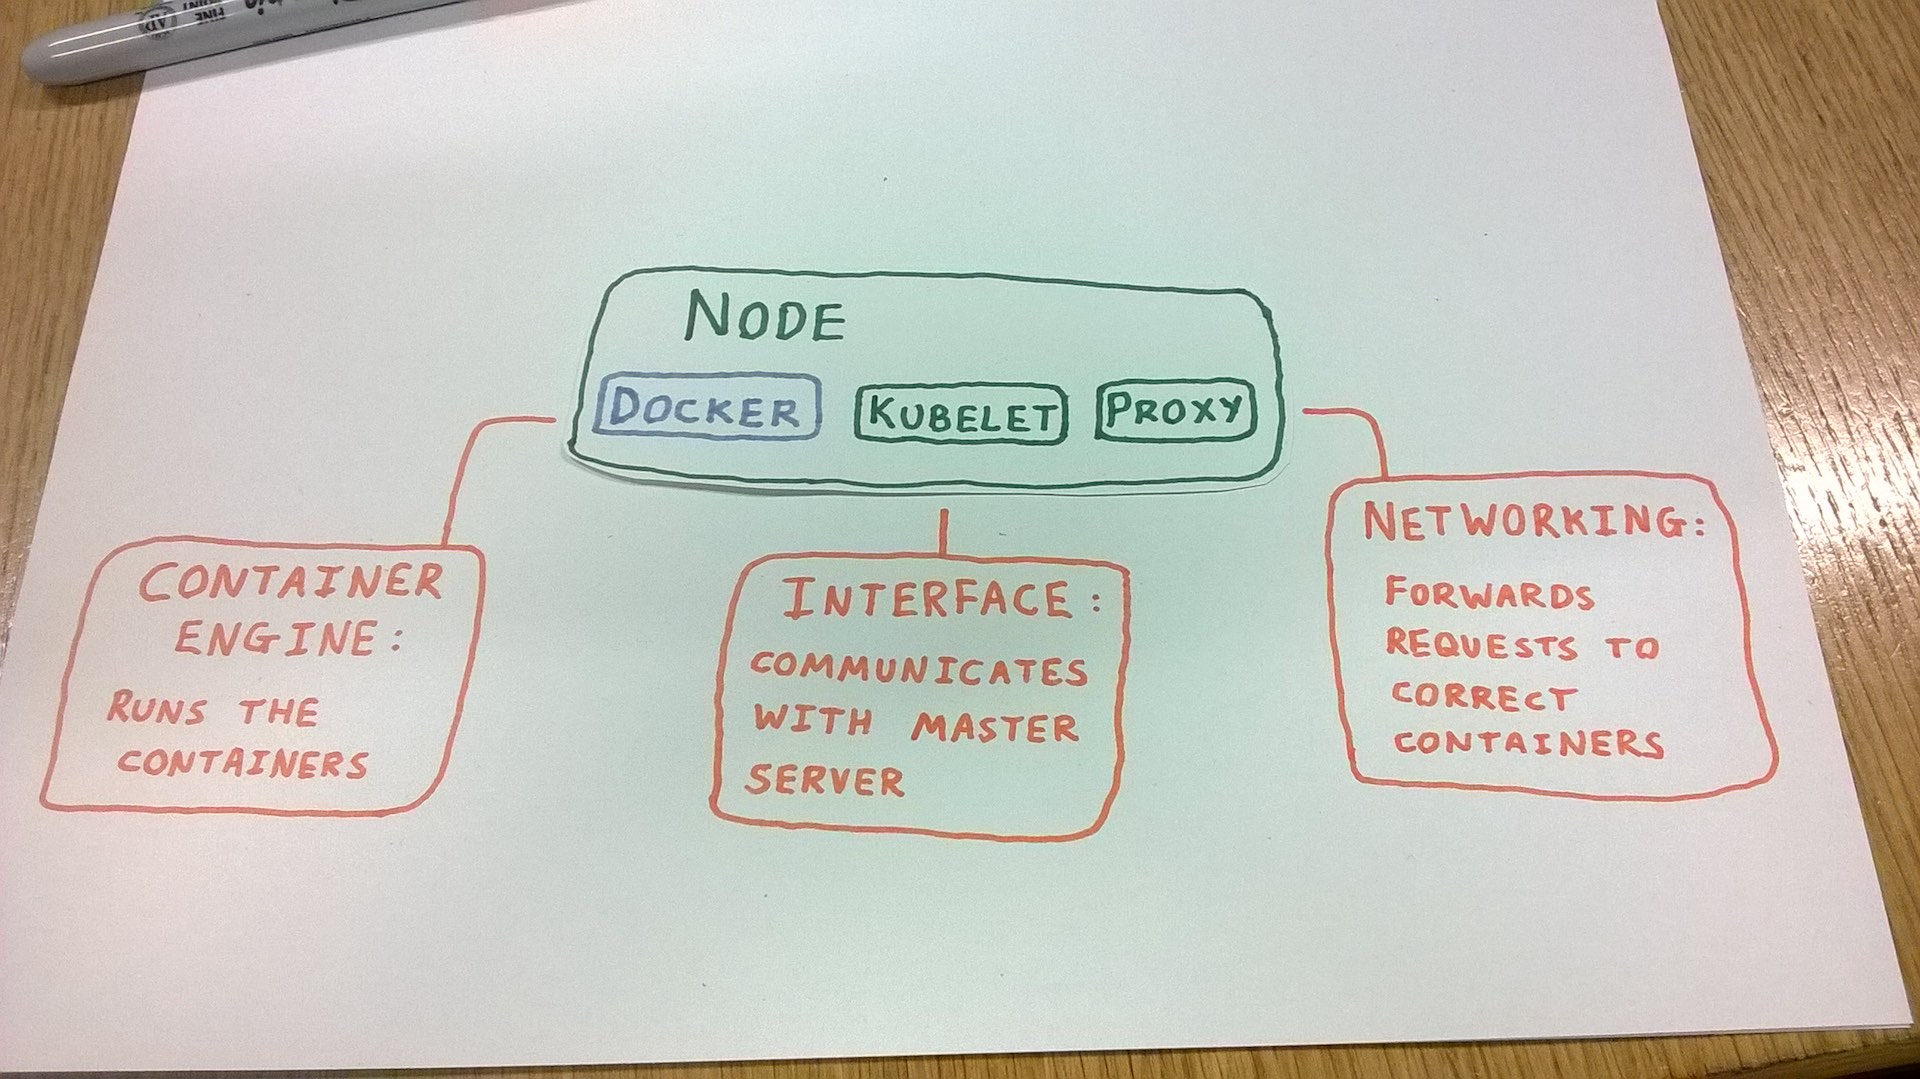 FINE
POINT
NODE
DOCKER
KUBELET
PROXY
CONTAINER
ENGINE:
RUNS THE
CONTAINERS
INTERFACE:
COMMUNICATES
WITH MASTER
SERVER
NETWORKING:
FORWARDS
REQUESTS TO
CORRECT
CONTAINERS